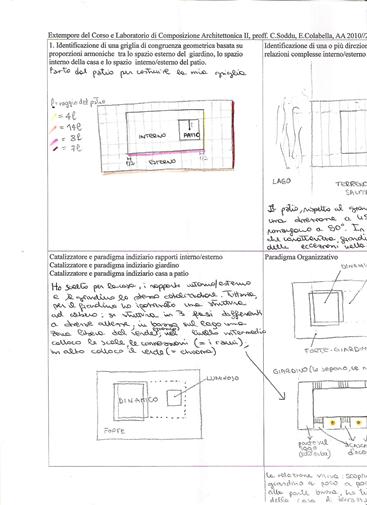 Extempore del Corso e Laboratorio di Composizione Architettonica II, proff. C.Soddu, E.Colabella, AA 2010//
1. Identificazione di una griglia di congruenza geometrica basata su
proporzioni armoniche tra lo spazio esterno del giardino, lo spazio
interno della casa e lo spazio interno/esterno del patio.
Parto dal patio per costruire la mia griglia
l = raggio del patio
= 4l
= 14l
= 3l
= 7l
INTERNO
PATIO
ESTERNO
Identificazione di una o più direzio
relazioni complesse interno/esterno
LAGO
TERRENO
Il patio, rispetto al
una direzione a 45
a 90°. In
che
delle eccezioni nella
Catalizzatore e paradigma indiziario rapporti interno/esterno
Catalizzatore e paradigma indiziario giardino
Catalizzatore e paradigma indiziario casa a patio
Ho scelto per la casa, i rapporti interno/esterno
e il giardino lo stesso catalizzatore. Tuttavia,
per il giardino ho ipotizzato una struttura
ad albero: si struttura in 3 fasi differenti
a diverse altezze, in basso sul lago una
zona libera dal verde, nel livello intermedio
colloco le scale, le connessioni (= i rami),
in alto colloco il verde (= chioma)
LUMINOSO
DINAMICO
FORTE
Paradigma Organizzativo
DINAMI
FORTE - GIARDIN
GIARDINO (lo separo, se n
patio sul
lago
CASCA
D'AC
la relazione
giardino a poco a po
alla parte bassa, ho
della casa